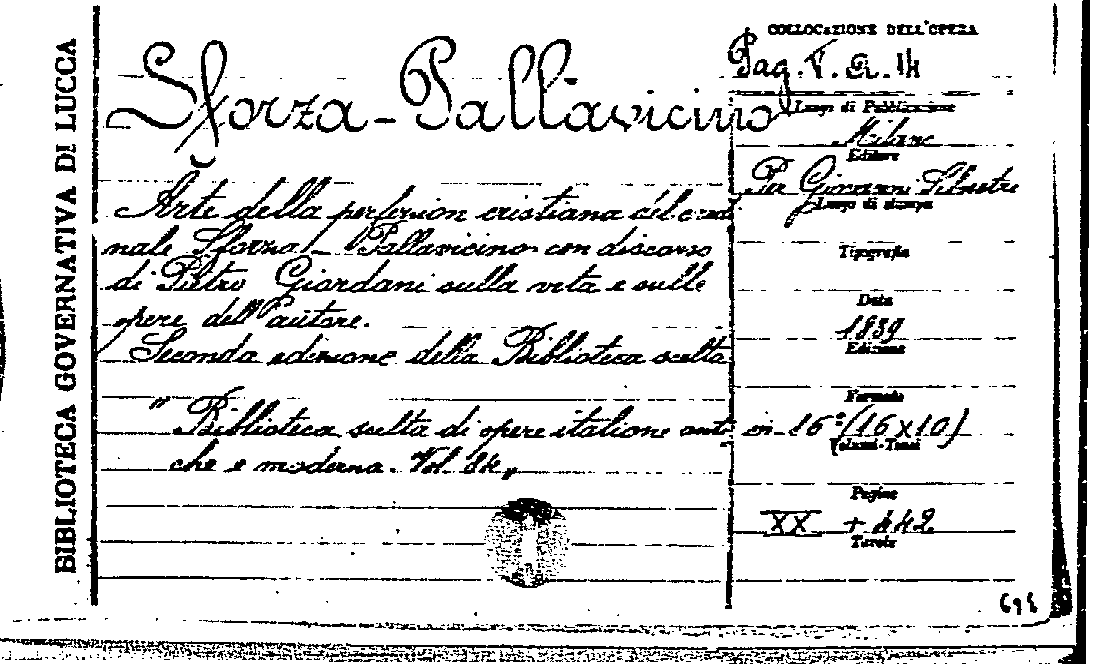 BIBLIOTECA GOVERNATIVA DI LUCCA
Sforza-Pallavicino
Arte della perfezion cristiana del cardi
nale Sforza-Pallavicino con discorso
di Pietro Giordani sulla vita e sulle
opere dell'autore.
Seconda edizione della Biblioteca scelta
"Biblioteca scelta di opere italiane anti
che e moderne. Vol.
COLLOCAZIONE DELL'OPERA
Pag. V.
Luogo di Pubblicazione
Milano
Editore
Per Giovanni Silvestri
Luogo di stampa
Tipografia
Data
1839
Edizione
Formato
in 16° (16x10)
Volumi-Tomi
Pagine
XX + 442
Tavole